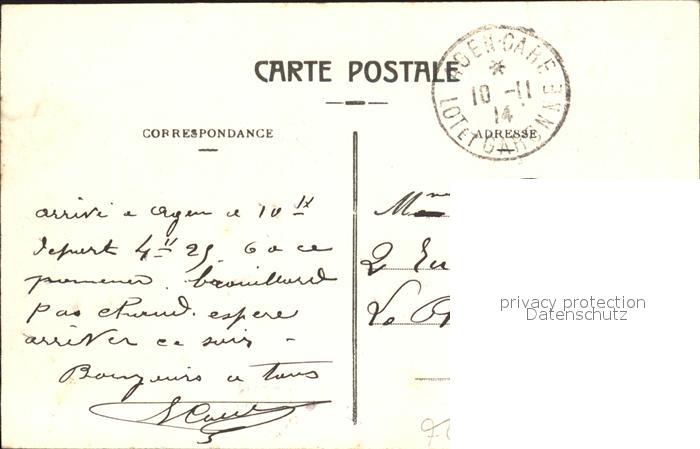 CARTE POSTALE
AGEN-GARE
*
10 -11
14
LOT ET GARONNE
CORRESPONDANCE
ADRESSE
arrivé a Agen a 10 H
Depart 4 H 25
promener. brouillard
pas chaud. espere
arriver ce soir -
Bonjours a tous
Mme
2 Ru
Le
privacy protection
Datenschutz